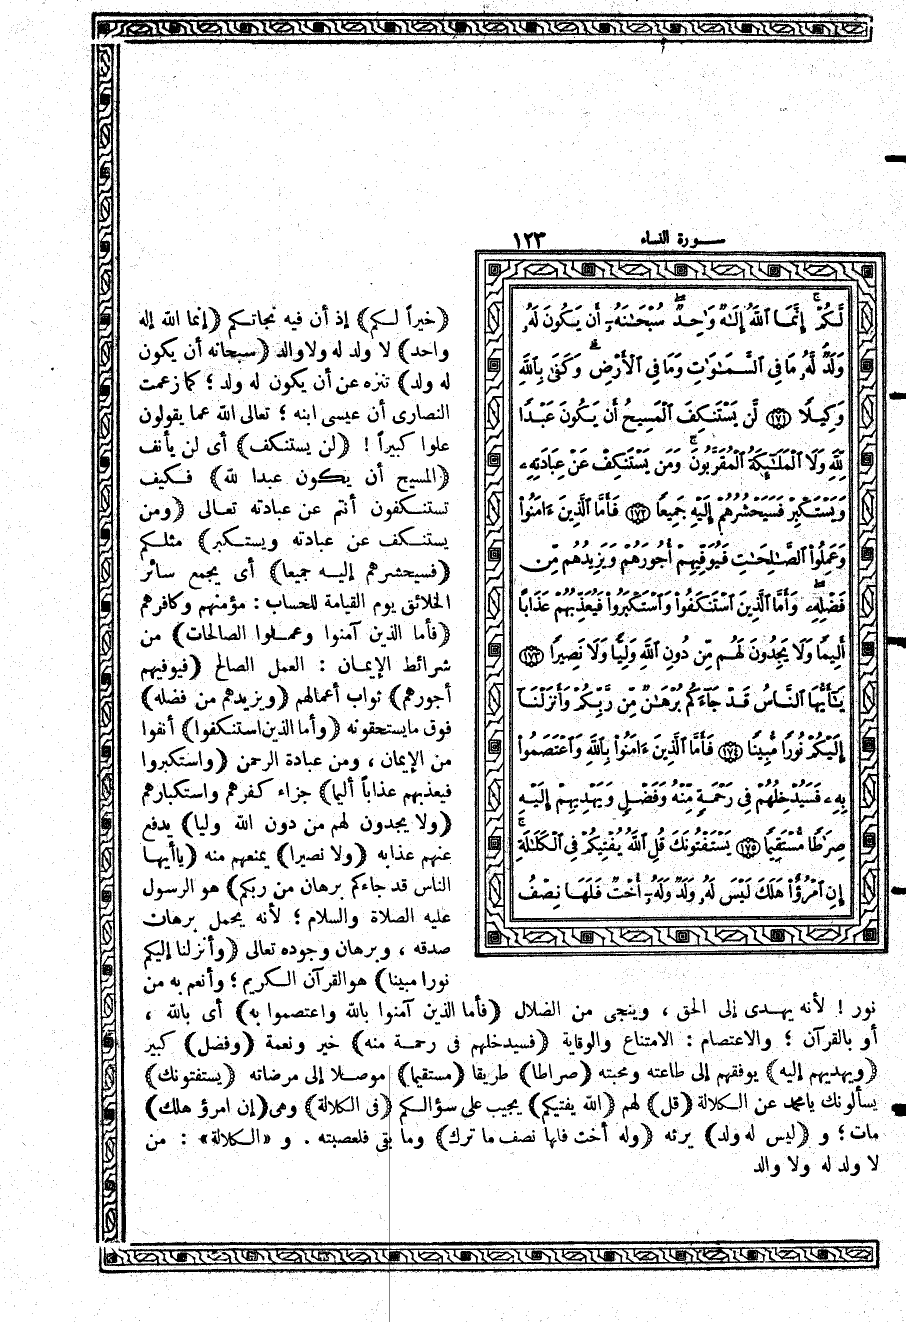 سورة النساء ١٢٣
لَّكُمْ ۚ إِنَّمَا ٱللَّهُ إِلَٰهٌ وَٰحِدٌ ۖ سُبْحَٰنَهُۥٓ أَن يَكُونَ لَهُۥ
وَلَدٌ ۘ لَّهُۥ مَا فِى ٱلسَّمَٰوَٰتِ وَمَا فِى ٱلْأَرْضِ ۗ وَكَفَىٰ بِٱللَّهِ
وَكِيلًا ﴿١٧١﴾ لَّن يَسْتَنكِفَ ٱلْمَسِيحُ أَن يَكُونَ عَبْدًا
لِّلَّهِ وَلَا ٱلْمَلَٰٓئِكَةُ ٱلْمُقَرَّبُونَ ۚ وَمَن يَسْتَنكِفْ عَنْ عِبَادَتِهِۦ
وَيَسْتَكْبِرْ فَسَيَحْشُرُهُمْ إِلَيْهِ جَمِيعًا ﴿١٧٢﴾ فَأَمَّا ٱلَّذِينَ ءَامَنُوا۟
وَعَمِلُوا۟ ٱلصَّٰلِحَٰتِ فَيُوَفِّيهِمْ أُجُورَهُمْ وَيَزِيدُهُم مِّن
فَضْلِهِۦ ۖ وَأَمَّا ٱلَّذِينَ ٱسْتَنكَفُوا۟ وَٱسْتَكْبَرُوا۟ فَيُعَذِّبُهُمْ عَذَابًا
أَلِيمًا وَلَا يَجِدُونَ لَهُم مِّن دُونِ ٱللَّهِ وَلِيًّا وَلَا نَصِيرًا ﴿١٧٣﴾
يَٰٓأَيُّهَا ٱلنَّاسُ قَدْ جَآءَكُم بُرْهَٰنٌ مِّن رَّبِّكُمْ وَأَنزَلْنَآ
إِلَيْكُمْ نُورًا مُّبِينًا ﴿١٧٤﴾ فَأَمَّا ٱلَّذِينَ ءَامَنُوا۟ بِٱللَّهِ وَٱعْتَصَمُوا۟
بِهِۦ فَسَيُدْخِلُهُمْ فِى رَحْمَةٍ مِّنْهُ وَفَضْلٍ وَيَهْدِيهِمْ إِلَيْهِ
صِرَٰطًا مُّسْتَقِيمًا ﴿١٧٥﴾ يَسْتَفْتُونَكَ قُلِ ٱللَّهُ يُفْتِيكُمْ فِى ٱلْكَلَٰلَةِ ۚ
إِنِ ٱمْرُؤٌا۟ هَلَكَ لَيْسَ لَهُۥ وَلَدٌ وَلَهُۥٓ أُخْتٌ فَلَهَا نِصْفُ
(خيراً لكم) إذ أن فيه نجاتكم (إنما الله إله
واحد) لا ولد له ولا والد (سبحانه أن يكون
له ولد) تنزه عن أن يكون له ولد ؛ كما زعمت
النصارى أن عيسى ابنه ؛ تعالى الله عما يقولون
علوا كبيراً ! (لن يستنكف) أى لن يأنف
(المسيح أن يكون عبدا لله) فكيف
تستنكفون أنتم عن عبادته تعالى (ومن
يستنكف عن عبادته ويستكبر) مثلكم
(فسيحشرهم إليه جميعا) أى يجمع سائر
الخلائق يوم القيامة للحساب : مؤمنهم وكافرهم
(فأما الذين آمنوا وعملوا الصالحات) من
شرائط الإيمان : العمل الصالح (فيوفيهم
أجورهم) ثواب أعمالهم (ويزيدهم من فضله)
فوق مايستحقونه (وأما الذين استنكفوا) أنفوا
من الإيمان ، ومن عبادة الرحمن (واستكبروا
فيعذبهم عذاباً أليما) جزاء كفرهم واستكبارهم
(ولا يجدون لهم من دون الله وليا) يدفع
عنهم عذابه (ولا نصيرا) يمنعهم منه (ياأيها
الناس قد جاءكم برهان من ربكم) هو الرسول
عليه الصلاة والسلام ؛ لأنه يحمل برهان
صدقه ، وبرهان وجوده تعالى (وأنزلنا إليكم
نورا مبينا) هو القرآن الكريم ؛ وأنعم به من
نور ! لأنه يهدى إلى الحق ، وينجى من الضلال (فأما الذين آمنوا بالله واعتصموا به) أى بالله ،
أو بالقرآن ؛ والاعتصام : الامتناع والوقاية (فسيدخلهم فى رحمة منه) خير ونعمة (وفضل) كبير
(ويهديهم إليه) يوفقهم إلى طاعته ومحبته (صراطا) طريقا (مستقيما) موصلا إلى مرضاته (يستفتونك)
يسألونك يامحمد عن الكلالة (قل) لهم (الله يفتيكم) يجيب على سؤالكم (فى الكلالة) وهى (إن امرؤ هلك)
مات ؛ و (ليس له ولد) يرثه (وله أخت فلها نصف ما ترك) وما بقى فلعصبته . و «الكلالة» : من
لا ولد له ولا والد